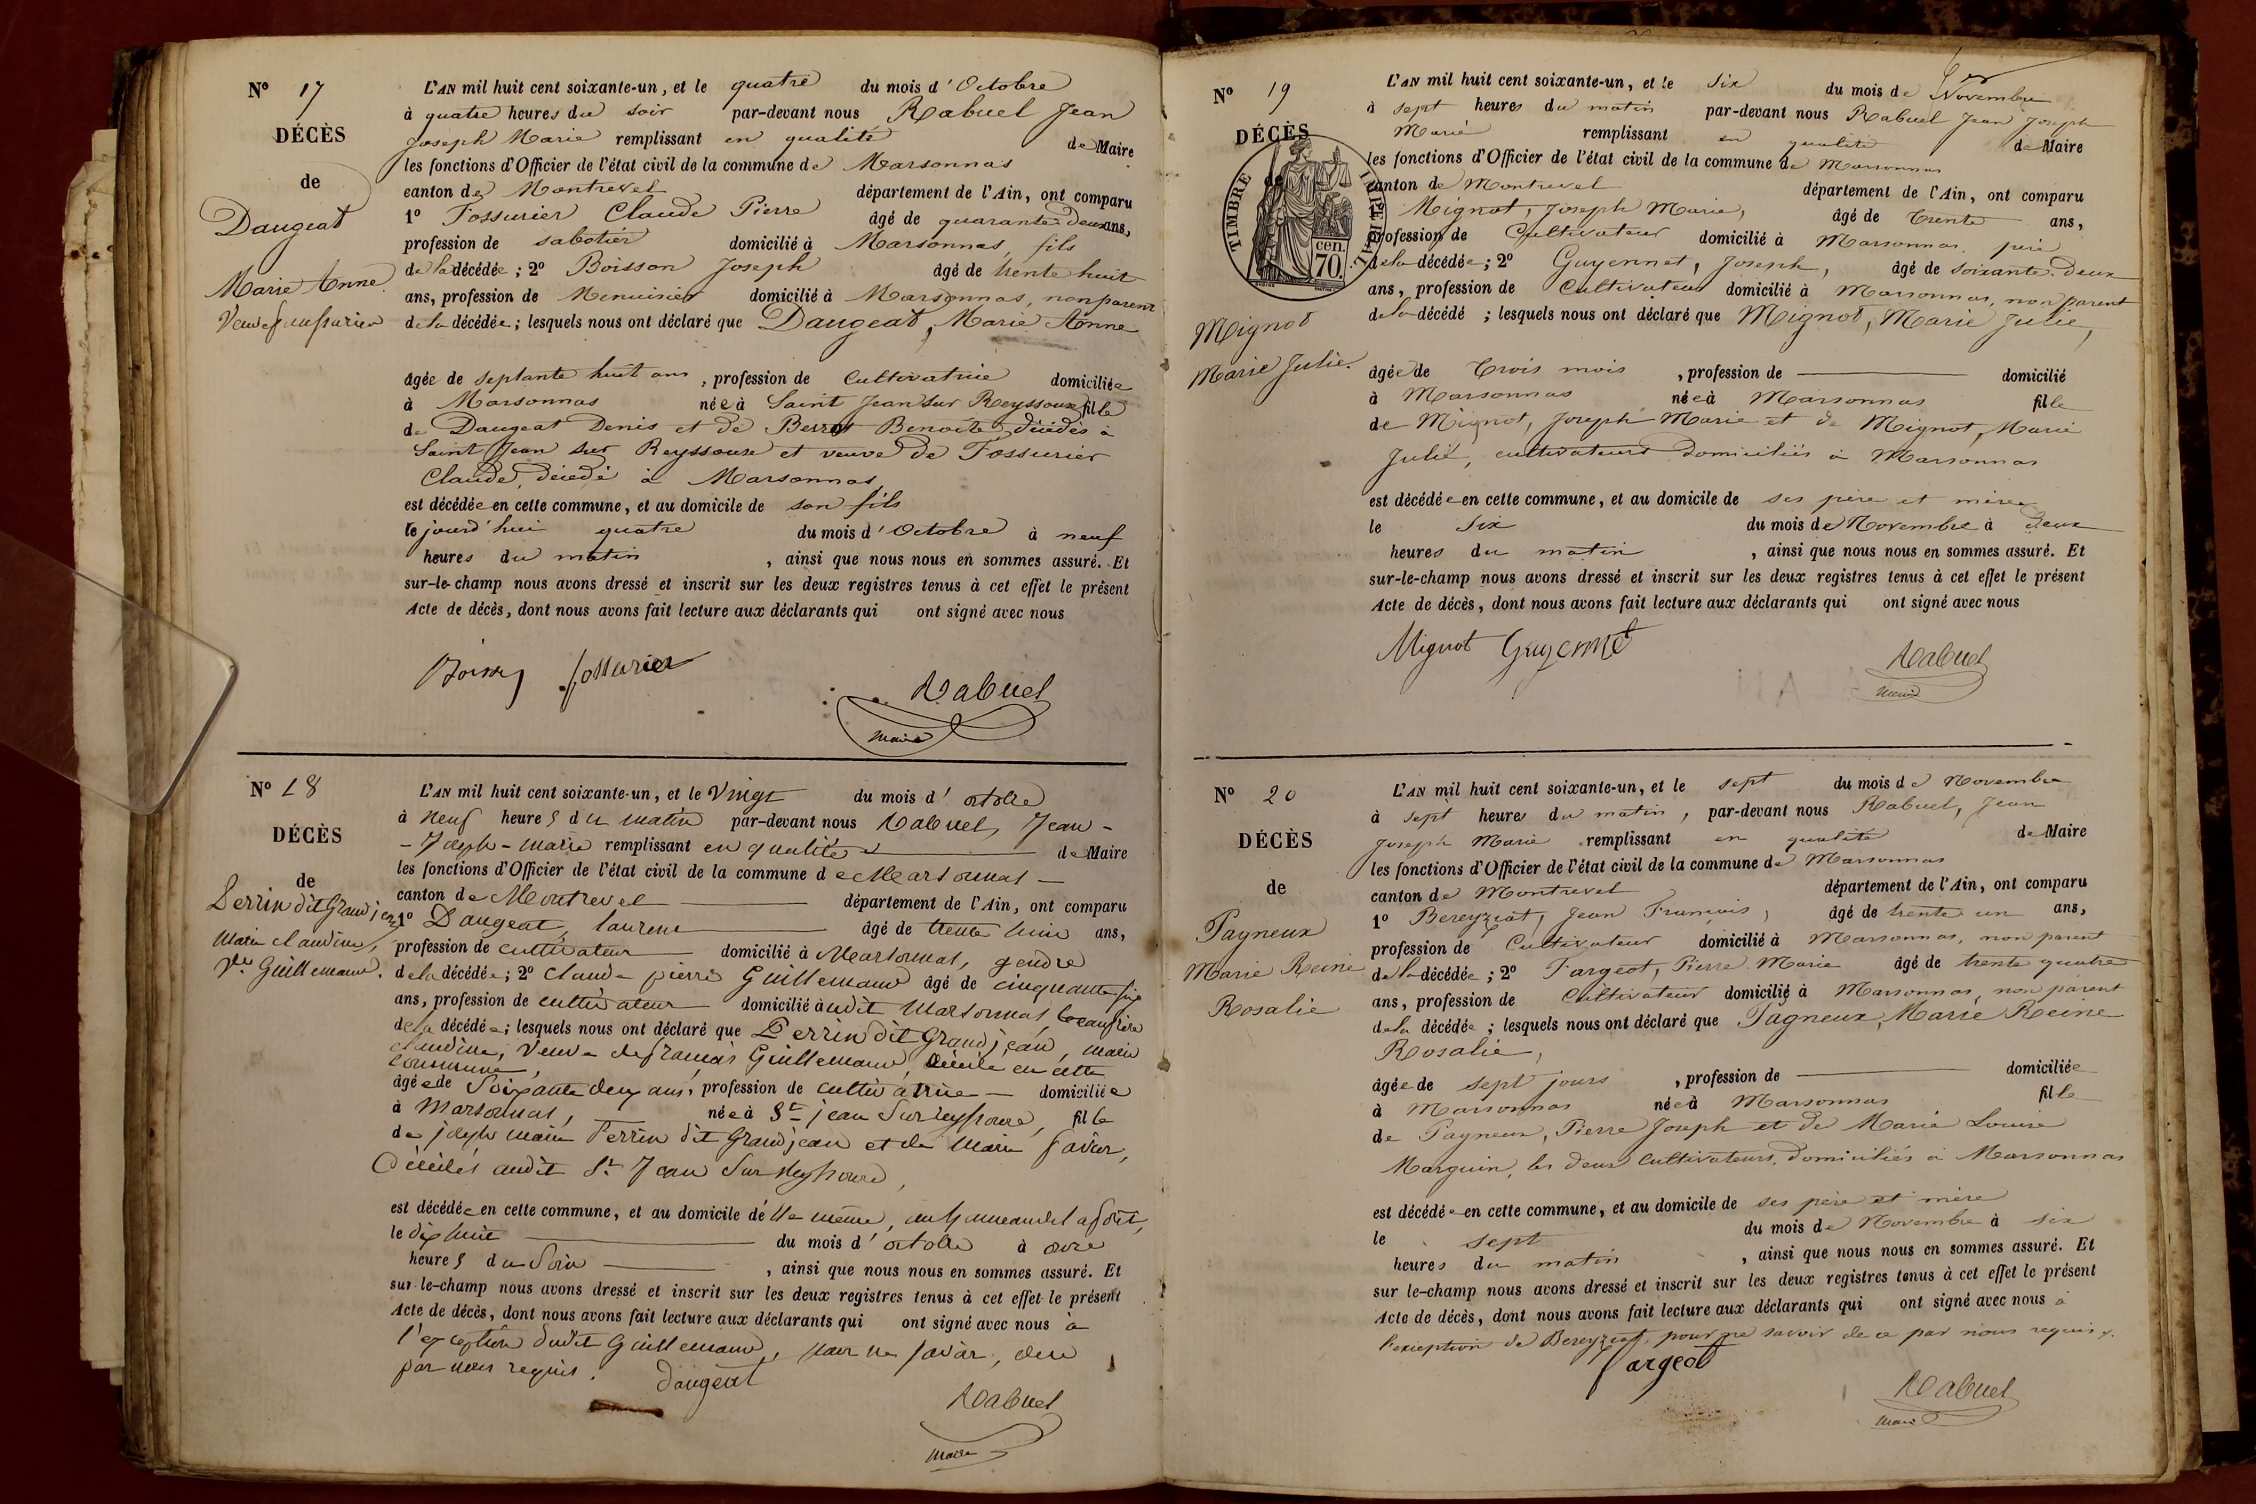 N° 17
DÉCÈS
de
Daugeat
Marie Anne
L'AN mil huit cent soixante-un, et le quatre du mois d'Octobre
à quatre heures du soir par-devant nous Rabuel Jean
Joseph Marie remplissant en qualité de Maire
les fonctions d'Officier de l'état civil de la commune de Marsonnas
canton de Montrevel département de l'Ain, ont comparu
1° Fossurier Claude Pierre âgé de quarante deux ans,
profession de sabotier domicilié à Marsonnas, fils
de la décédée; 2° Boisson Joseph âgé de trente huit
ans, profession de Menuisier domicilié à Marsonnas, non parent
de la décédée; lesquels nous ont déclaré que Daugeat, Marie Anne
âgée de septante huit ans, profession de Cultivatrice domiciliée
à Marsonnas née à Saint Jean sur Reyssouze fille
de Daugeat Denis et de Benoite décédés à
Saint Jean sur Reyssouze et veuve de Fossurier
Claude, décédé à Marsonnas
est décédée en cette commune, et au domicile de son fils
le jourd'hui quatre du mois d'Octobre à neuf
heures du matin, ainsi que nous nous en sommes assuré. Et
sur-le-champ nous avons dressé et inscrit sur les deux registres tenus à cet effet le présent
Acte de décès, dont nous avons fait lecture aux déclarants qui ont signé avec nous
fossurier
Rabuel
maire
N° 18
DÉCÈS
de
Perrin dit Grandjean
Marie claudine,
Vve Guillemaud.
L'AN mil huit cent soixante-un, et le Vingt du mois d'octobre
à neuf heures du matin par-devant nous Rabuel, Jean-
-Joseph-marie remplissant en qualité de Maire
les fonctions d'Officier de l'état civil de la commune de Marsonnas
canton de Montrevel département de l'Ain, ont comparu
1° Daugeat, laurent âgé de trente huit ans,
profession de cultivateur domicilié à Marsonnas, gendre
de la décédée; 2° Claude pierre Guillemaud âgé de cinquante six
ans, profession de cultivateur domicilié audit Marsonnas beaufrère
de la décédée; lesquels nous ont déclaré que Perrin dit Grandjean, marie
claudine, veuve de françois Guillemaud, décédé en cette
commune,
âgée de Soixante deux ans, profession de cultivatrice domiciliée
à Marsonnas, née à St jean Sur reyssouze, fille
de joseph marie Perrin dit Grandjean et de Marie favier,
Décédés audit St Jean Sur Reyssouze,
est décédée en cette commune, et au domicile d'elle même, au hameau de
le dix huit du mois d'octobre à onze
heures du Soir, ainsi que nous nous en sommes assuré. Et
sur-le-champ nous avons dressé et inscrit sur les deux registres tenus à cet effet le présent
Acte de décès, dont nous avons fait lecture aux déclarants qui ont signé avec nous à
l'exception dudit Guillemaud, pour ne savoir, de ce
par nous requis.
Daugeat
Rabuel
maire
N° 19
DÉCÈS
de
TIMBRE IMPERIAL
70 cen.
Mignot
Marie Julie.
L'AN mil huit cent soixante-un, et le six du mois de Novembre
à sept heures du matin par-devant nous Rabuel Jean Joseph
Marie remplissant en qualité de Maire
les fonctions d'Officier de l'état civil de la commune de Marsonnas
canton de Montrevel département de l'Ain, ont comparu
Mignot, Joseph Marie, âgé de Trente ans,
profession de Cultivateur domicilié à Marsonnas, père
de la décédée; 2° Guyennet, Joseph, âgé de soixante-deux
ans, profession de Cultivateur domicilié à Marsonnas, non parent
de la décédé; lesquels nous ont déclaré que Mignot, Marie Julie,
âgée de Trois mois, profession de domicilié
à Marsonnas née à Marsonnas fille
de Mignot, Joseph Marie et de Mignot, Marie
Julie, cultivateurs domiciliés à Marsonnas
est décédée en cette commune, et au domicile de ses père et mère
le Six du mois de Novembre à deux
heures du matin, ainsi que nous nous en sommes assuré. Et
sur-le-champ nous avons dressé et inscrit sur les deux registres tenus à cet effet le présent
Acte de décès, dont nous avons fait lecture aux déclarants qui ont signé avec nous
Mignot Guyennet
Rabuel
maire
N° 20
DÉCÈS
de
Pagneux
Marie Reine
Rosalie
L'AN mil huit cent soixante-un, et le sept du mois de Novembre
à sept heures du matin, par-devant nous Rabuel, Jean
Joseph Marie remplissant en qualité de Maire
les fonctions d'Officier de l'état civil de la commune de Marsonnas
canton de Montrevel département de l'Ain, ont comparu
1° Bereyziat, Jean François, âgé de trente un ans,
profession de Cultivateur domicilié à Marsonnas, non parent
de la décédée; 2° Fargeot, Pierre Marie âgé de trente quatre
ans, profession de Cultivateur domicilié à Marsonnas, non parent
de la décédée; lesquels nous ont déclaré que Pagneux, Marie Reine
Rosalie,
âgée de sept jours, profession de domiciliée
à Marsonnas née à Marsonnas fille
de Pagneux, Pierre Joseph et de Marie Louise
Marguin, les deux Cultivateurs, domiciliés à Marsonnas
est décédée en cette commune, et au domicile de ses père et mère
le sept du mois de Novembre à six
heures du matin, ainsi que nous nous en sommes assuré. Et
sur-le-champ nous avons dressé et inscrit sur les deux registres tenus à cet effet le présent
Acte de décès, dont nous avons fait lecture aux déclarants qui ont signé avec nous à
l'exception de Bereyziat, pour ne savoir de ce par nous requis.
fargeot
Rabuel
maire